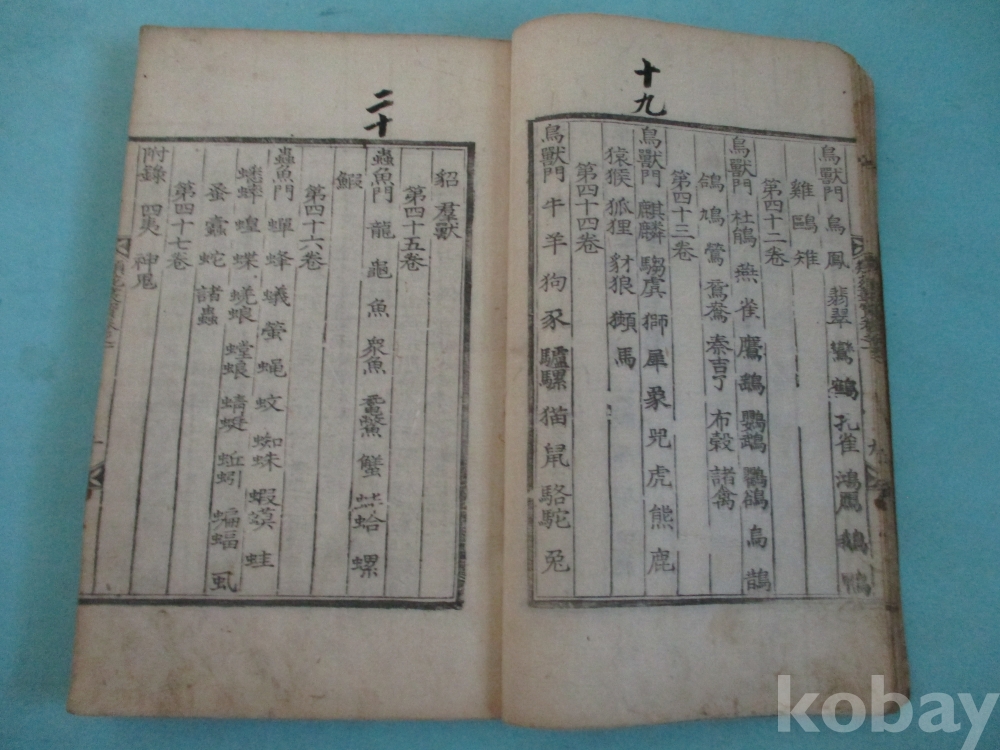 十九
鳥獸門 鳥 鳳 翡翠 鸞 鶴 孔雀 鴻鴈 鵝 鴨
雞 鷗 雉
第四十二卷
鳥獸門 杜鵑 燕 雀 鷹 鷂 鸚鵡 鸜鵒 烏 鵲
鴿 鳩 鶯 鴛鴦 秦吉了 布穀 諸禽
第四十三卷
鳥獸門 麒麟 騶虞 獅 犀 象 兕 虎 熊 鹿
猿猴 狐狸 豺狼 獺 馬
第四十四卷
鳥獸門 牛 羊 狗 豕 驢騾 猫 鼠 駱駝 兔
二十
貂 羣獸
第四十五卷
蟲魚門 龍 龜 魚 衆魚 黿鼈 蟹 螺
蝦
第四十六卷
蟲魚門 蟬 蜂 蟻 螢 蝇 蚊 蜘蛛 蝦蟆 蛙
蟋蟀 蝗 蝶 蜣蜋 螳蜋 蜻蜓 蚯蚓 蝙蝠 虱
蚤 蠹 蛇 諸蟲
第四十七卷
附錄 四夷 神鬼
kobay